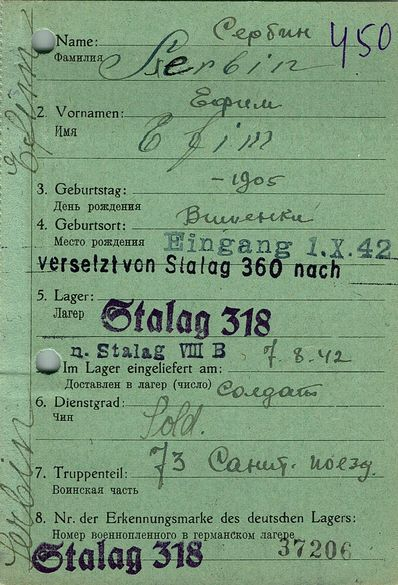 Name: Сербин 450
Фамилия Serbin
2. Vornamen: Ефим
Имя Efim
3. Geburtstag: -1905
День рождения
4. Geburtsort:
Место рождения Eingang 1.X.42
versetzt von Stalag 360 nach
5. Lager:
Лагер Stalag 318
n. Stalag VIII B 7.8.42
Im Lager eingeliefert am:
Доставлен в лагер (число) Солдат
6. Dienstgrad:
Чин Sold.
7. Truppenteil: 73 Санит. поезд.
Воинская часть
8. Nr. der Erkennungsmarke des deutschen Lagers:
Номер военнопленного в германском лагере
Stalag 318 37206
Serbin Efim